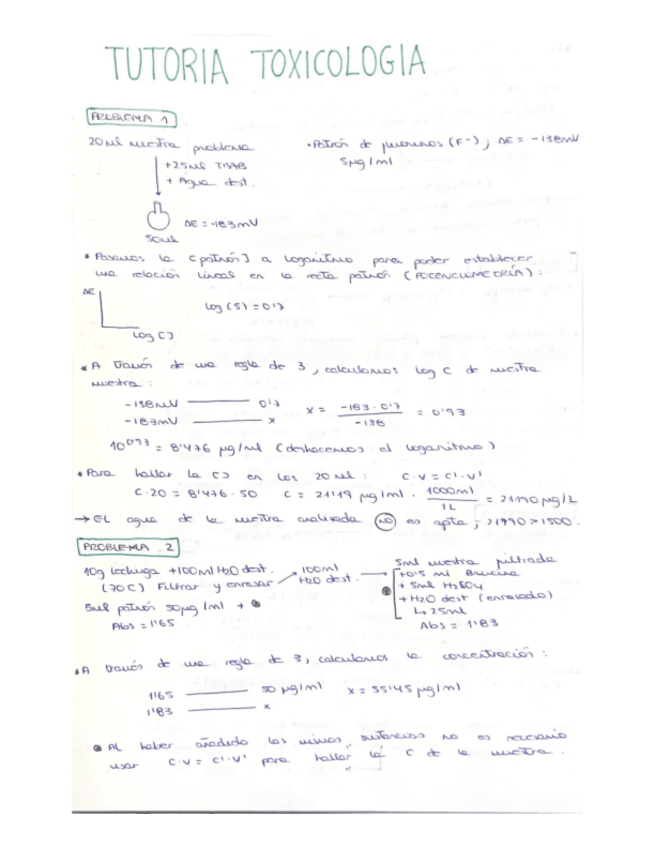 TUTORIA TOXICOLOGIA
PROBLEMA 1
20ml muestra problema
+25ml TISAB
+ Agua dest.
50ml
ΔE = -183mV
• Patrón de fluoruros (F-); ΔE = -138mV
5μg/ml
* Pasamos la [patrón] a logaritmo para poder establecer
una relación lineal en la recta patrón (POTENCIOMETRÍA):
ΔE
log(5) = 0'7
log C]
* A través de una regla de 3, calculamos log C de nuestra
muestra:
-138mV 0'7
-183mV x
x = -183·0'7 / -138 = 0'93
10^0'93 = 8'476 μg/ml (deshacemos el logaritmo)
• Para hallar la C] en los 20ml: C·V = C'·V'
C·20 = 8'476·50 C = 21'19 μg/ml · 1000ml / 1L = 21190 μg/L
→ El agua de la muestra analizada NO es apta; 21190 > 1500.
PROBLEMA 2
10g lechuga +100ml H2O dest.
(70C) Filtrar y enrasar
100ml
H2O dest.
5ml muestra filtrada
+0'5 ml Brucina
+ 5ml H2SO4
+ H2O dest (enrasado)
↳ 25ml
Abs = 1'83
5ml patrón 50μg/ml +
Abs = 1'65
* A través de una regla de 3, calculamos la concentración:
1'65 50 μg/ml x = 55'45 μg/ml
1'83 x
Al haber añadido las mismas sustancias no es necesario
usar C·V = C'·V' para hallar la C de la muestra.